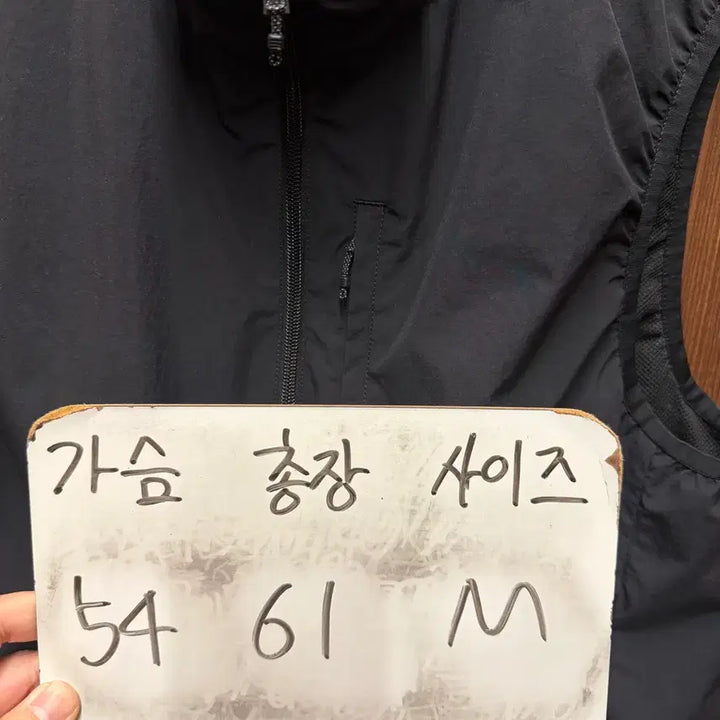 가슴 총장 사이즈
54 61 M